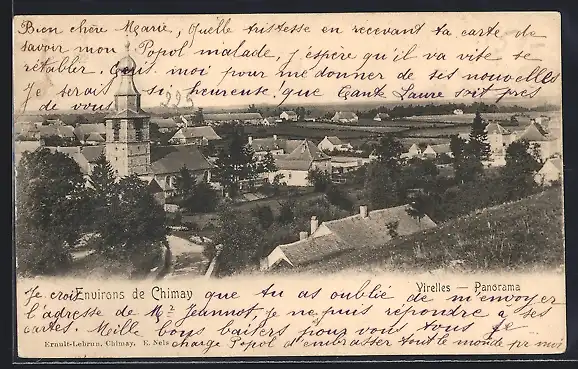 Bien chère Marie, Quelle tristesse en recevant ta carte de
savoir mon Popol malade, j'espère qu'il va vite se
rétablir, Ecris moi pour me donner de ses nouvelles
Je serais si heureuse que Tante Laure soit près
de vous
Je crois que tu as oublié de m'envoyer
Environs de Chimay
Virelles — Panorama
l'adresse de Mr Jeannot, je ne puis répondre à ses
cartes. Mille bons baisers pour vous tous Je
charge Popol d'embrasser tout le monde pr moi
Ernult-Lebrun, Chimay. E. Nels